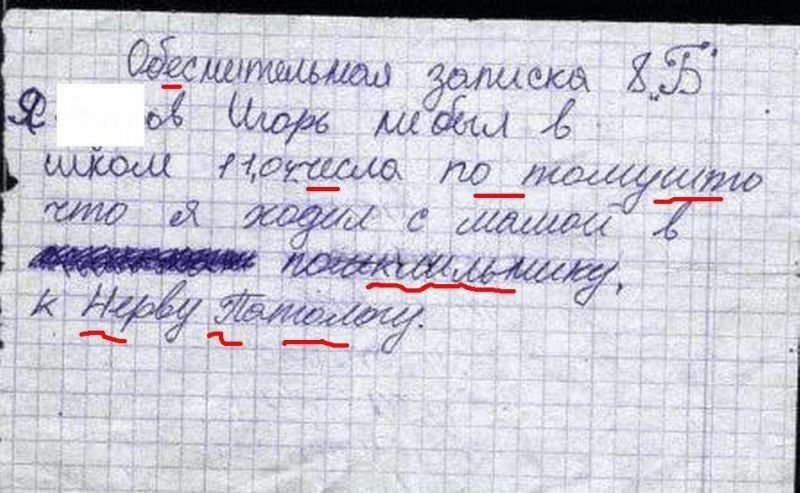 Обеснительная записка 8 „Б"
Я ов Игорь небыл в
школе 11,04 чесла по томушто
что я ходил с мамой в
к Нерву Патологу.